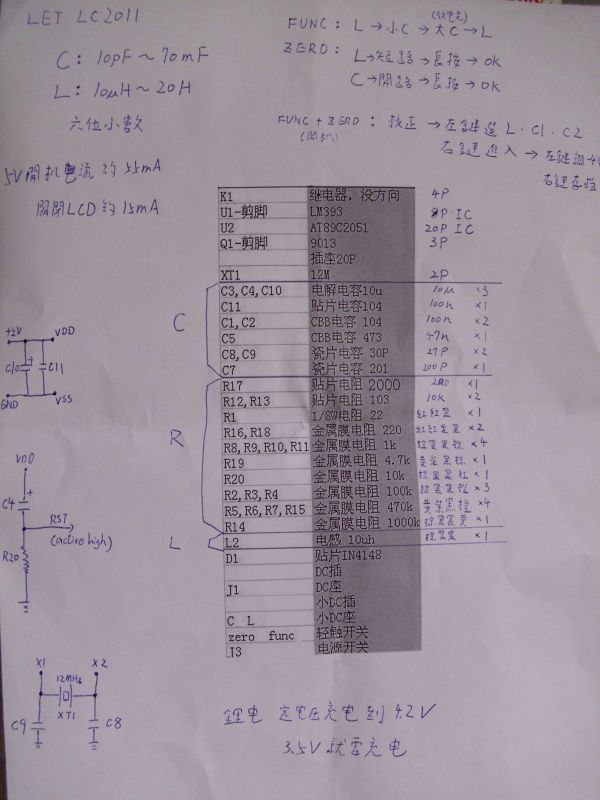 LET LC2011
C: 10pF~70mF
L: 10μH~20H
六位小數
5V開机电流 約 55mA
関閉LCD 約 15mA
FUNC: L → 小C → 大C → L
ZERO: L → 短路 → 長按 → OK
C → 開路 → 長按 → OK
FUNC + ZERO: 校正 → 左鍵選 L、C1、C2
(開机)
右鍵進入 → 左鍵調
右鍵存
K1 继电器，没方向 4P
U1-剪脚 LM393 8P·IC
U2 AT89C2051 20P IC
Q1-剪脚 9013 3P
插座20P
XT1 12M 2P
C
C3,C4,C10 电解电容10u 10μ ×3
C11 贴片电容104 100n ×1
C1,C2 CBB电容 104 100n ×2
C5 CBB电容 473 47n ×1
C8,C9 瓷片电容 30P 27P ×2
C7 瓷片电容 201 200P ×1
R
R17 贴片电阻 2000 ×1
R12,R13 贴片电阻 103 10k ×2
R1 1/8W电阻 22 紅紅黑 ×1
R16,R18 金属膜电阻 220 紅紅黑黑 ×2
R8,R9,R10,R11 金属膜电阻 1k 棕黑黑棕 ×4
R19 金属膜电阻 4.7k 黄紫黑棕 ×1
R20 金属膜电阻 10k 棕黑黑紅 ×1
R2,R3,R4 金属膜电阻 100k 棕黑黑橙 ×3
R5,R6,R7,R15 金属膜电阻 470k 黄紫黑橙 ×4
R14 金属膜电阻 1000k 棕黑黑黄 ×1
L
L2 电感 10uh 棕黑黑 ×1
D1 贴片IN4148
DC插
J1 DC座
小DC插
C L 小DC座
zero func 轻触开关
J3 电源开关
+5V VDD
C10 + C11
GND VSS
VDD
C4 +
RST
(active high)
R20
X1 X2
12MHz
XT1
C9 C8
鋰电 定电压充电到 4.2V
3.5V 就要充电